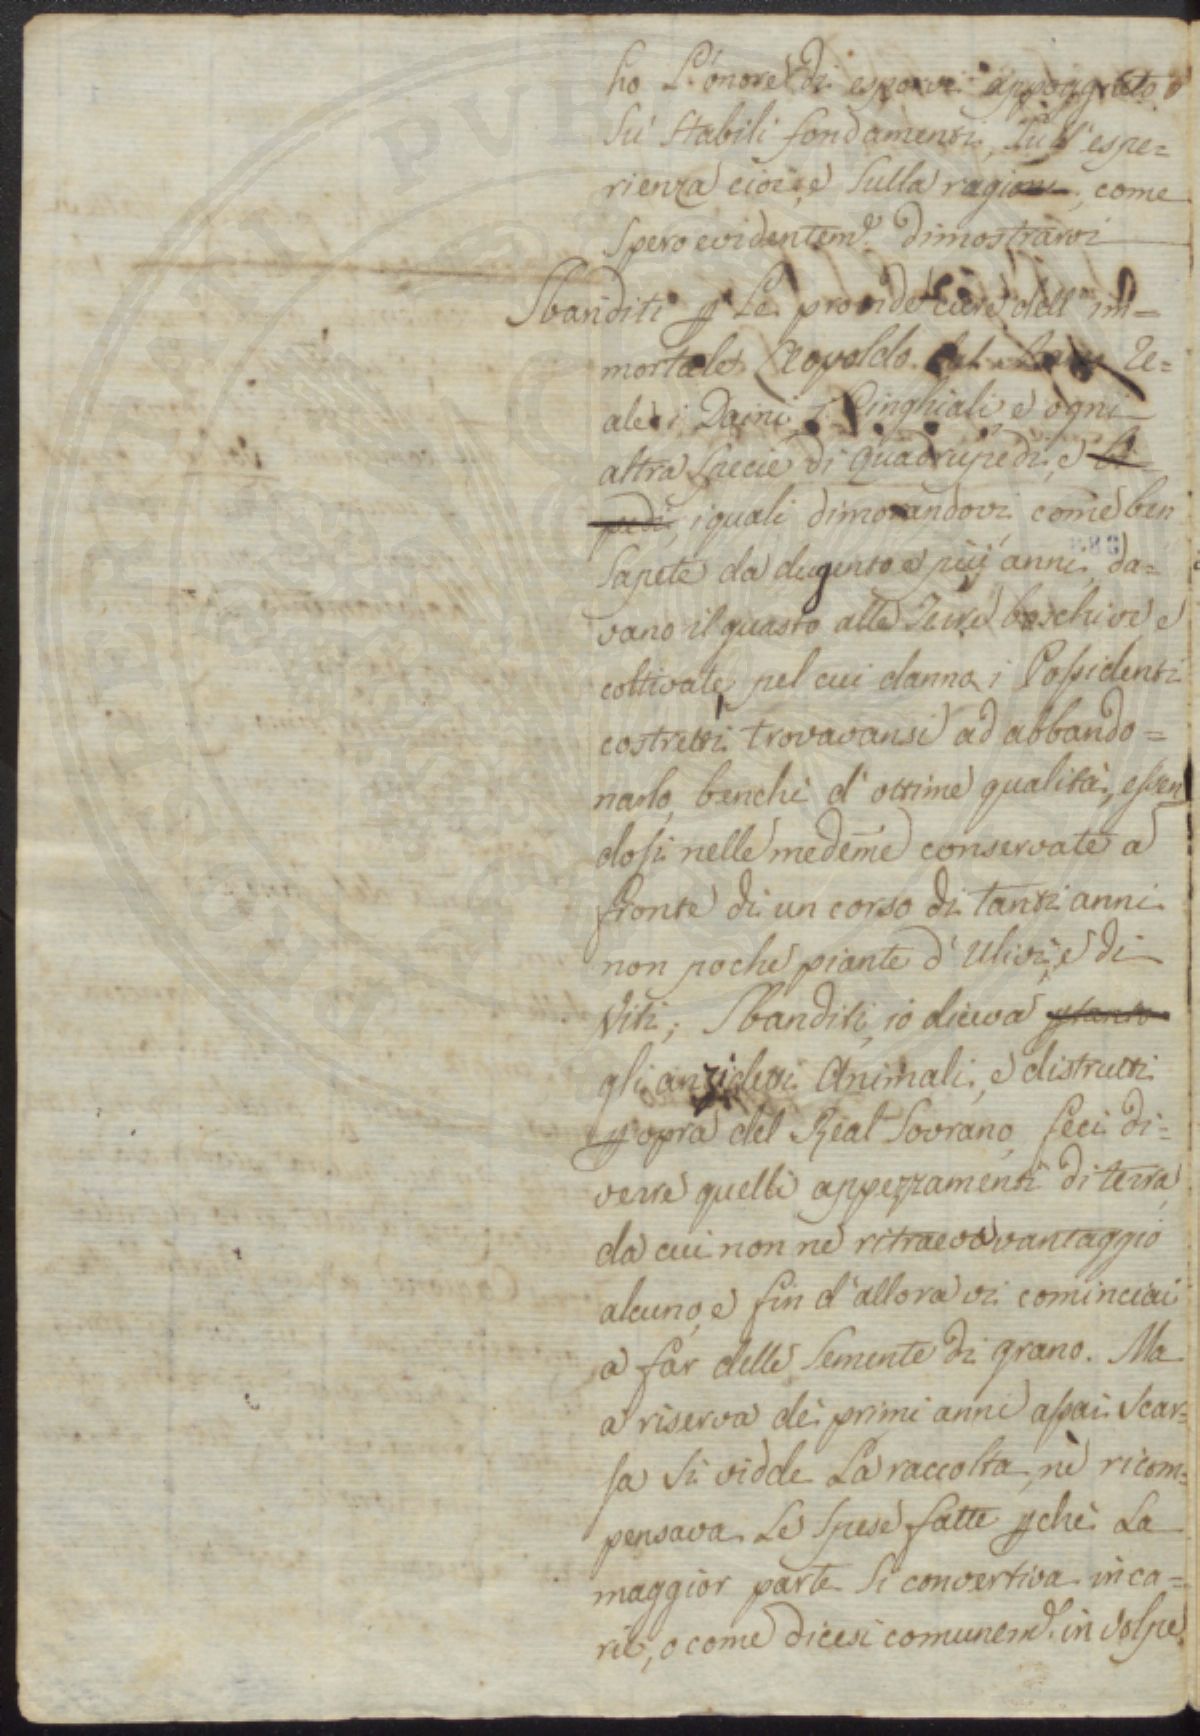 ho L'onore di esporvi appoggiato
sù stabili fondamenti, sull'espe=
rienza cioè, e sulla ragione, come
spero evidentem.e dimostrarvi
Sbanditi p Le provide cure dell' im=
mortale Leopoldo Re=
ale i Daini, i Cinghiali e ogni
altra specie di Quadrupedi, e Bi
pedi, i quali dimorandovi come ben
sapete da dugento e più anni, da=
vano il guasto alle Terre boschive e
coltivate, pel cui danno i Possidenti
costretti trovavansi ad abbando=
narlo, benchè d'ottime qualità, essen
dosi nelle medeme conservate a
fronte di un corso di tanti anni
non poche piante d'Ulivi, e di
Viti; Sbanditi, io diceva ptanto
gli anzidetti Animali, e distrutti
p opra del Real Sovrano feci di=
verre quelli appezzamenti di terra
da cui non ne ritraevo vantaggio
alcuno, e fin d'allora vi cominciai
a far delle semente di grano. Ma
a riserva dei primi anni assai scar=
sa si vidde La raccolta, nè ricom=
pensava Le spese fatte pchè La
maggior parte si convertiva in ca=
rie, o come dicesi comunem.e in volpe